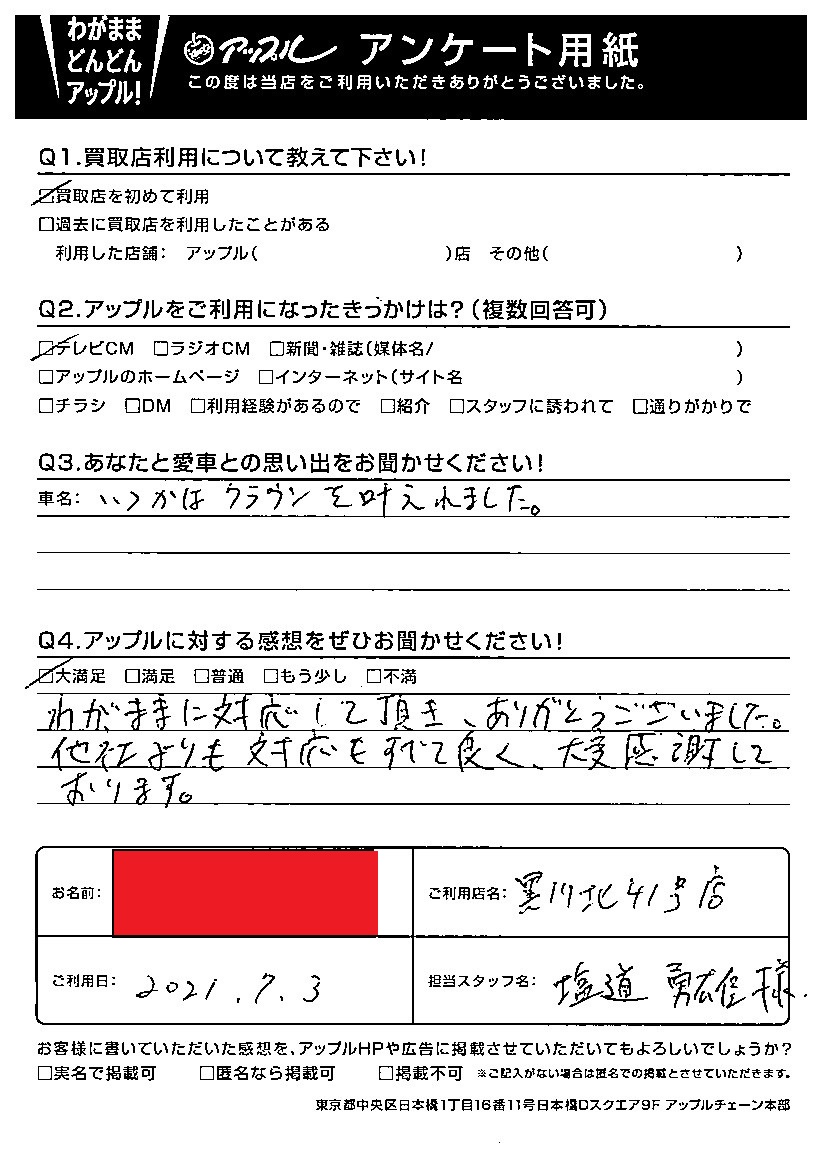 わがまま
どんどん
アップル!
アップル アンケート用紙
この度は当店をご利用いただきありがとうございました。
Q1.買取店利用について教えて下さい!
☑買取店を初めて利用
□過去に買取店を利用したことがある
利用した店舗: アップル( )店 その他( )
Q2.アップルをご利用になったきっかけは?(複数回答可)
☑テレビCM □ラジオCM □新聞・雑誌(媒体名/ )
□アップルのホームページ □インターネット(サイト名 )
□チラシ □DM □利用経験があるので □紹介 □スタッフに誘われて □通りがかりで
Q3.あなたと愛車との思い出をお聞かせください!
車名: いつかは クラウン を叶えれました。
Q4.アップルに対する感想をぜひお聞かせください!
☑大満足 □満足 □普通 □もう少し □不満
わがままに対応して頂き、ありがとうございました。
他社よりも 対応もすべて良く、大変感謝して
おります。
お名前:
ご利用店名: 黒川北41号店
ご利用日: 2021.7.3
担当スタッフ名: 塩道 勇 様.
お客様に書いていただいた感想を、アップルHPや広告に掲載させていただいてもよろしいでしょうか?
□実名で掲載可 □匿名なら掲載可 □掲載不可 ※ご記入がない場合は匿名での掲載とさせていただきます。
東京都中央区日本橋1丁目16番11号日本橋Dスクエア9F アップルチェーン本部